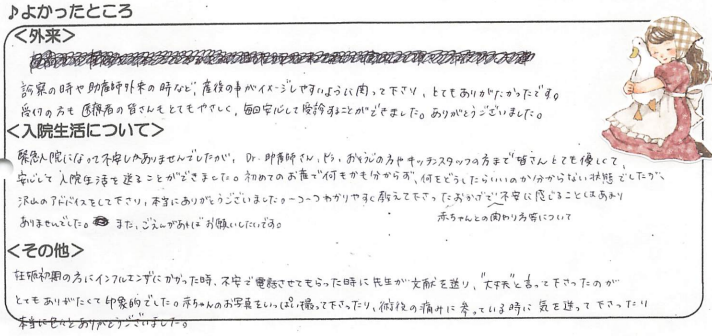 ♪よかったところ
<外来>
診察の時や助産師外来の時など、産後の事がイメージしやすいように関って下さり、とてもありがたかったです。
受付の方も医療者の皆さんもとてもやさしく、毎回安心して受診することができました。ありがとうございました。
<入院生活について>
緊急入院になって不安しかありませんでしたが、Dr. 助産師さん、おそうじの方やキッチンスタッフの方まで皆さんとても優しくて、
安心して入院生活を送ることができました。初めてのお産で何もかも分からず、何をどうしたらいいのか分からない状態でしたが、
沢山のアドバイスをして下さり、本当にありがとうございました。一つ一つわかりやすく教えて下さったおかげで不安に感じることはあまり
ありませんでした。また、ごえんがあればお願いしたいです。
赤ちゃんとの関わり方等について
<その他>
妊娠初期の方にインフルエンザにかかった時、不安で電話させてもらった時に先生が文献を送り、"大丈夫"と言って下さったのが
とてもありがたくて印象的でした。赤ちゃんのお写真をいっぱい撮って下さったり、術後の痛みに参っている時に気を遣って下さったり
本当に色々とありがとうございました。